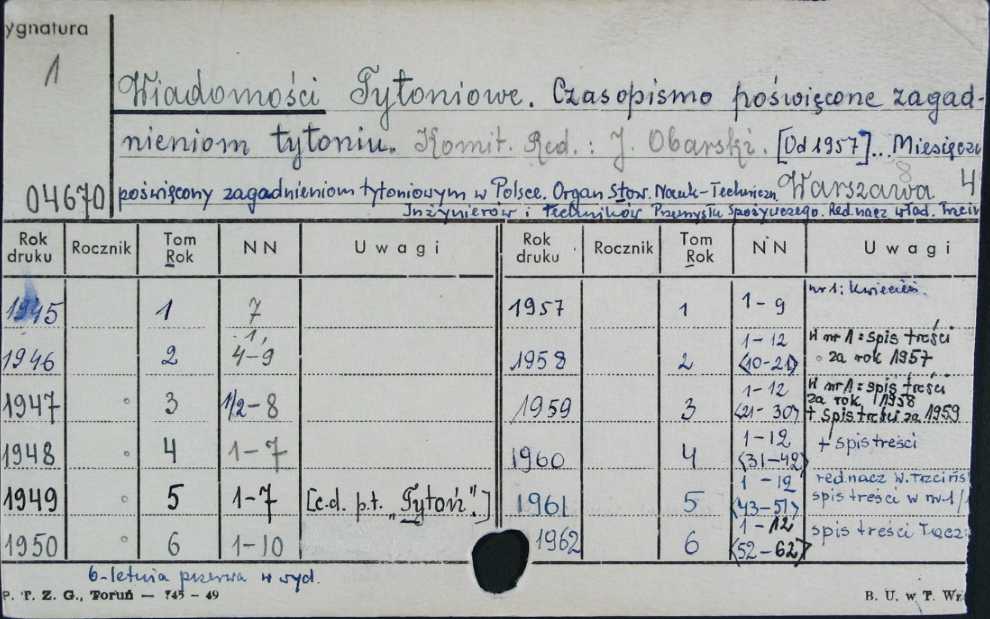 ygnatura
1
Wiadomości Tytoniowe. Czasopismo poświęcone zagad-
nieniom tytoniu. Komit. Red.: J. Obarski. [Od 1957]... Miesięczn
poświęcony zagadnieniom tytoniowym w Polsce. Organ Stow. Nauk-Techniczn Warszawa 8 4
04670
Inżynierów i techników Przemysłu Spożywczego. Red. nacz. Wład. Trzciń
Rok druku Rocznik Tom Rok NN Uwagi Rok druku Rocznik Tom Rok NN Uwagi
1945 1 7 1957 1 1-9 nr 1: kwiecień.
1946 2 1, 4-9 1958 2 1-12 <10-21> W nr 1: spis treści za rok 1957
1947 3 1/2-8 1959 3 1-12 <21-30> W nr 1: spis treści za rok 1958 + spis treści za 1959
1948 4 1-7 1960 4 1-12 <31-42> + spis treści
1949 5 1-7 [c.d. p.t. „Tytoń".] 1961 5 1-12 <43-51> red. nacz. W. Trzcińs spis treści w nr 1/1
1950 6 1-10 1962 6 1-12 <52-62> spis treści łącz
6-letnia przerwa w wyd.
P. T. Z. G., Toruń — 745 - 49 B. U. w T. Wz